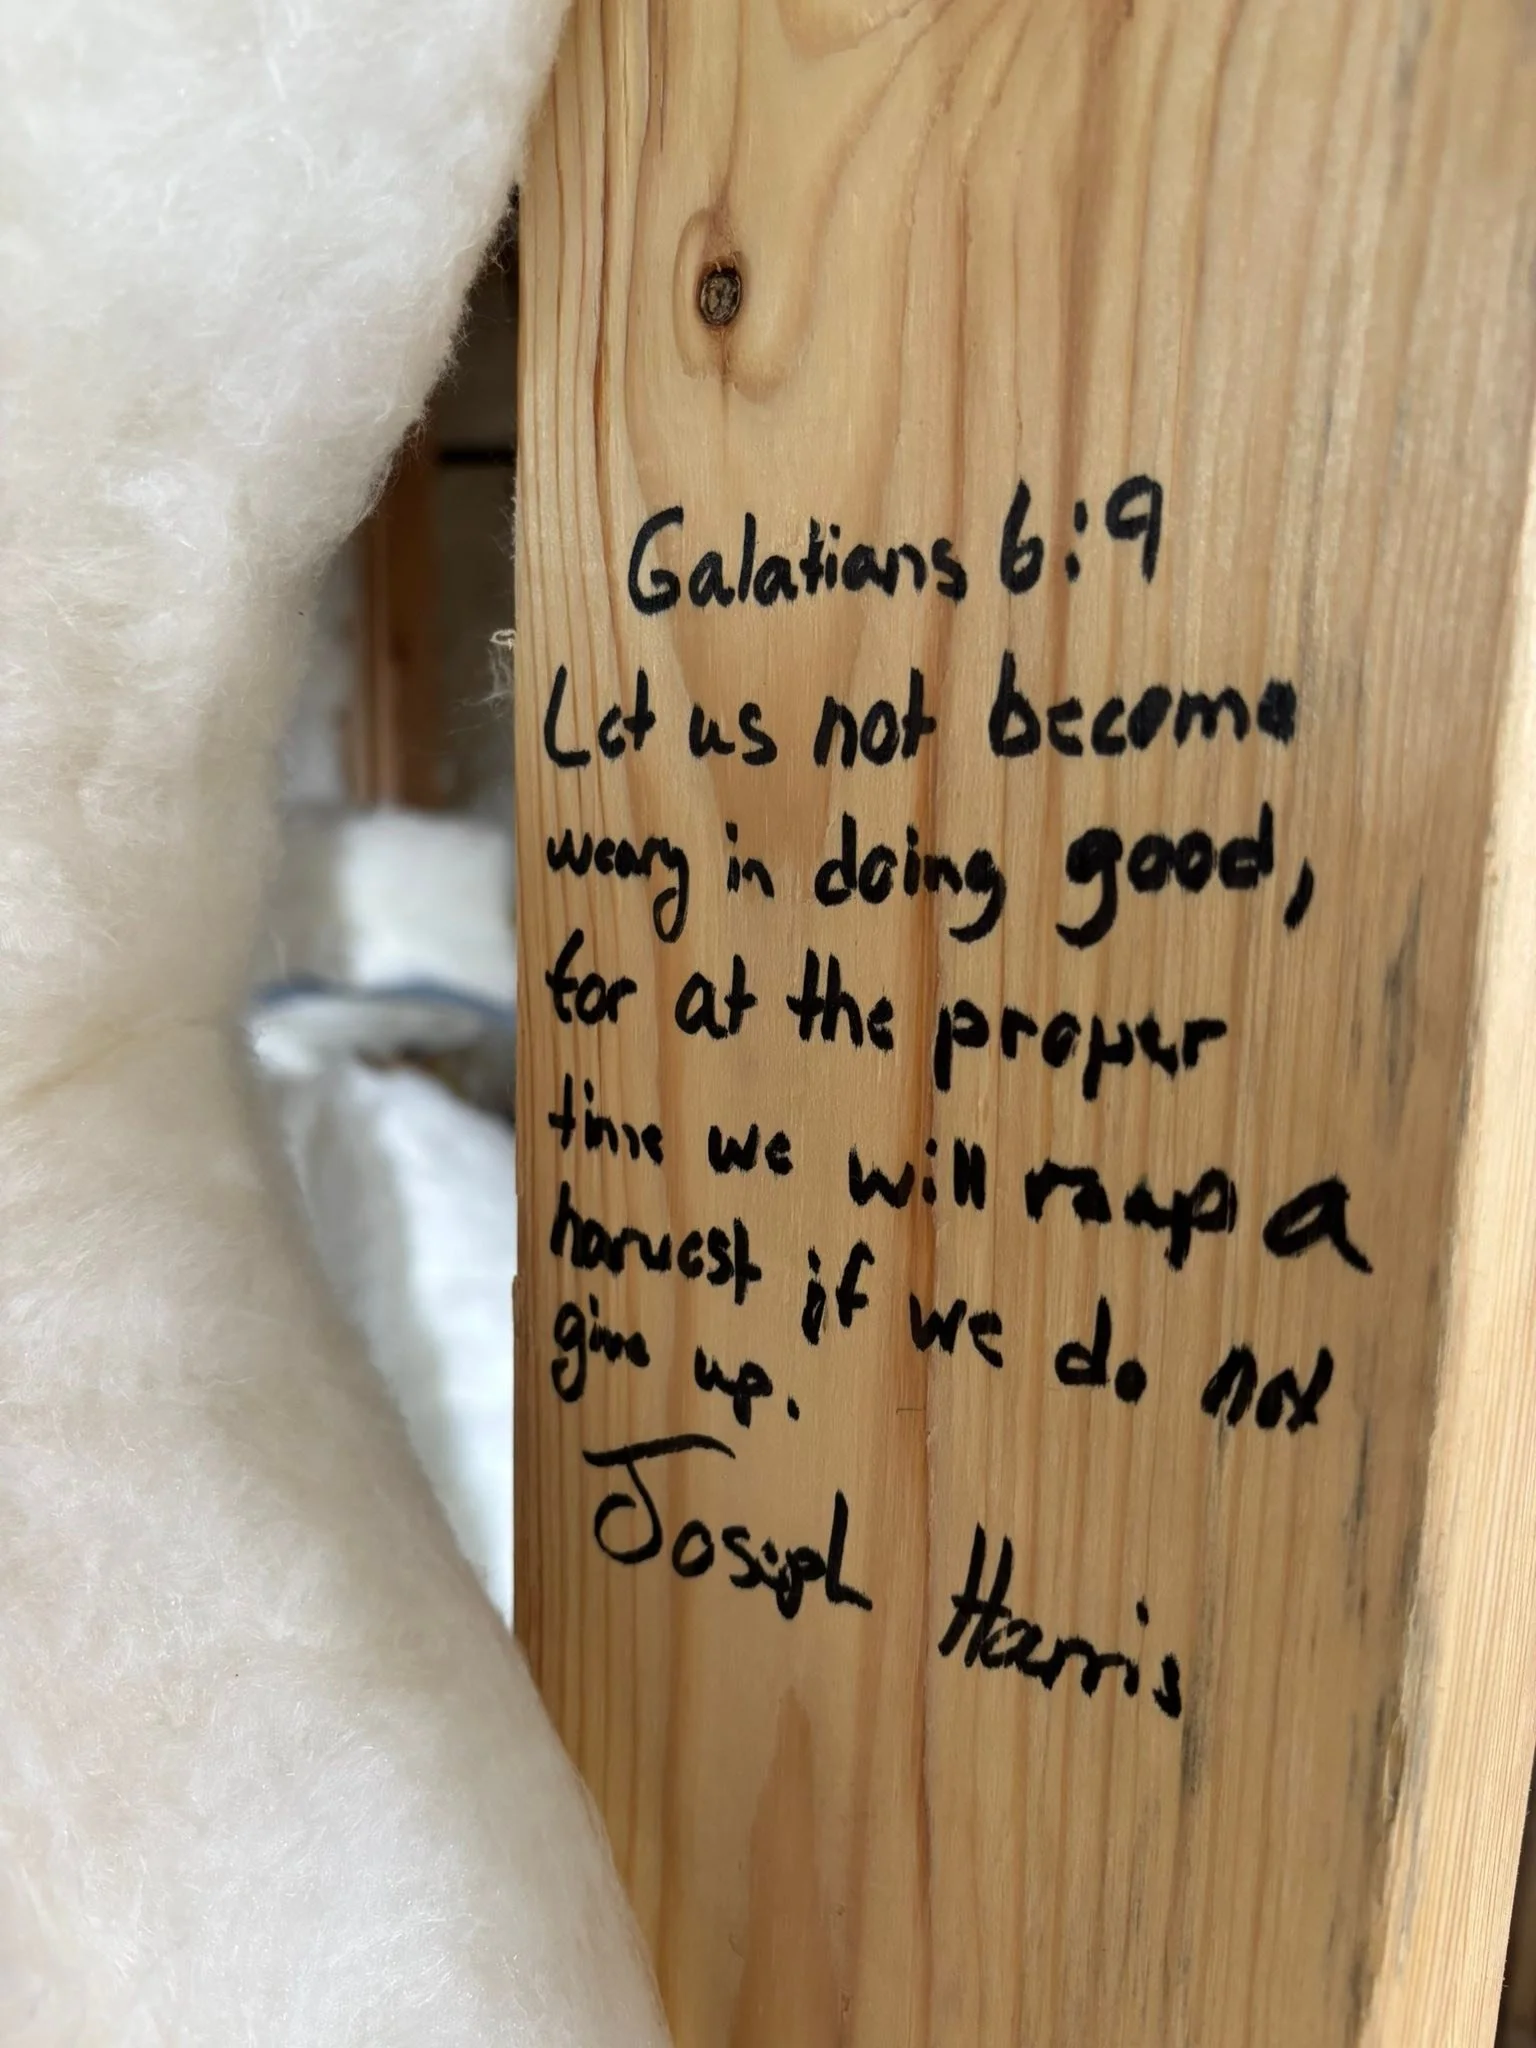 Galatians 6:9
Let us not become
weary in doing good,
for at the proper
time we will reap a
harvest if we do not
give up.
Joseph Harris